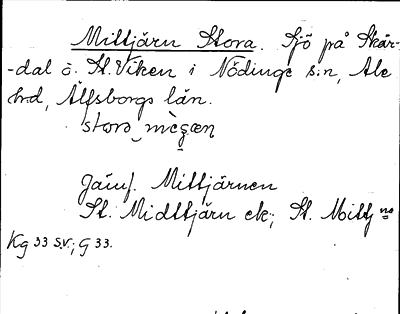 Mittjärn Stora. Sjö på Skår-
-dal o. St. Viken i Nödinge s:n, Ale
h:d, Älfsborgs län.
storə mègæn
Jämf. Mittjärnen
St. Midttjärn ek; St. Mittj
Kg 33 s.v.; G 33.